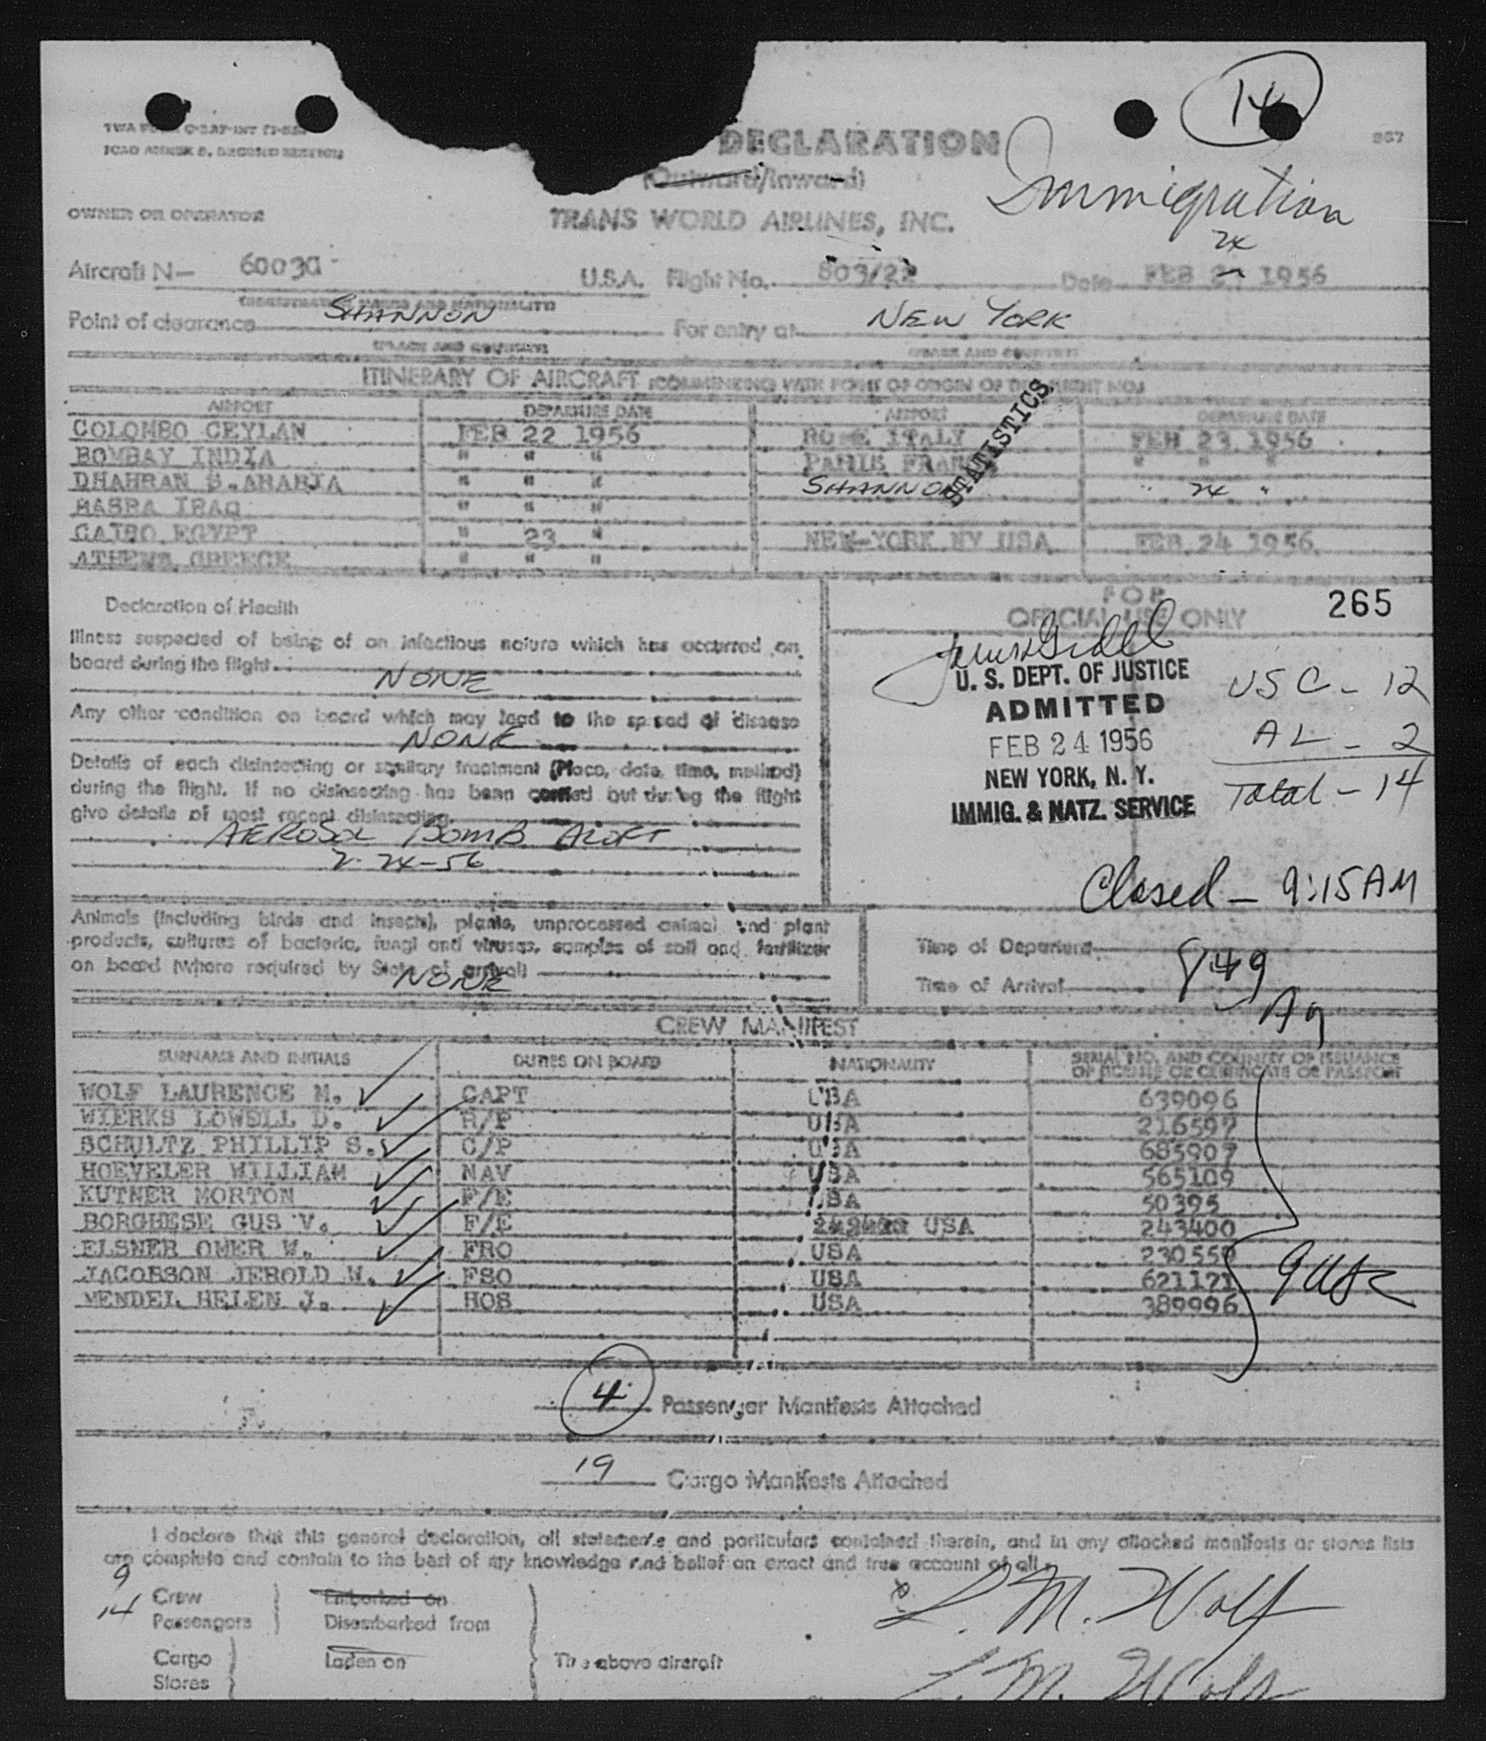 14
TWA
ICAO ANNEX 9, SECOND EDITION
DECLARATION
(Outward/Inward)
Immigration
OWNER OR OPERATOR
TRANS WORLD AIRLINES, INC.
24
Aircraft N— 6003C U.S.A. Flight No. 803/22 Date FEB 1956
(REGISTRATION MARKS AND NATIONALITY)
Point of clearance SHANNON For entry at NEW YORK
(PLACE AND COUNTRY) (PLACE AND COUNTRY)
ITINERARY OF AIRCRAFT (COMMENCING WITH POINT OF ORIGIN OF THE FLIGHT NO.)
AIRPORT DEPARTURE DATE AIRPORT DEPARTURE DATE
COLOMBO CEYLAN FEB 22 1956 ROME ITALY FEB 23 1956
BOMBAY INDIA " " " PARIS FRANCE " " "
DHAHRAN S.ARABIA " " " SHANNON " 24 "
BASRA IRAQ " " "
CAIRO EGYPT " 23 " NEW-YORK NY USA FEB 24 1956
ATHENS GREECE " " "
STATISTICS
Declaration of Health
Illness suspected of being of an infectious nature which has occurred on
board during the flight. NONE
Any other condition on board which may lead to the spread of disease
NONE
Details of each disinsecting or sanitary treatment (Place, date, time, method)
during the flight. If no disinsecting has been carried out during the flight
give details of most recent disinsecting.
AEROSOL BOMB ALOFT
2-24-56
FOR
OFFICIAL USE ONLY 265
U. S. DEPT. OF JUSTICE
ADMITTED
FEB 24 1956
NEW YORK, N. Y.
IMMIG. & NATZ. SERVICE
USC - 12
AL - 2
Total - 14
Closed - 9:15 AM
Animals (including birds and insects), plants, unprocessed animal and plant
products, cultures of bacteria, fungi and viruses, samples of soil and fertilizer
on board (where required by State of arrival)
NONE
Time of Departure
Time of Arrival 849
CREW MANIFEST
SURNAME AND INITIALS DUTIES ON BOARD NATIONALITY SERIAL NO. AND COUNTRY OF ISSUANCE
OF LICENSE OR CERTIFICATE OR PASSPORT
WOLF LAURENCE M. CAPT USA 639096
WIERKS LOWELL D. R/P USA 216597
SCHULTZ PHILLIP S. C/P USA 685907
HOEVELER WILLIAM NAV USA 565109
KUTNER MORTON F/E USA 50395
BORGHESE GUS V. F/E USA 243400
ELSNER OMER W. FRO USA 230559
JACOBSON JEROLD W. FSO USA 621121
MENDEL HELEN J. HOS USA 389996
9 USC
4 Passenger Manifests Attached
19 Cargo Manifests Attached
I declare that this general declaration, all statements and particulars contained therein, and in any attached manifests or stores lists
are complete and contain to the best of my knowledge and belief an exact and true account of all
9 Crew Embarked on
14 Passengers Disembarked from
Cargo Laden on The above aircraft
Stores
L. M. Wolf
L. M. Wolf